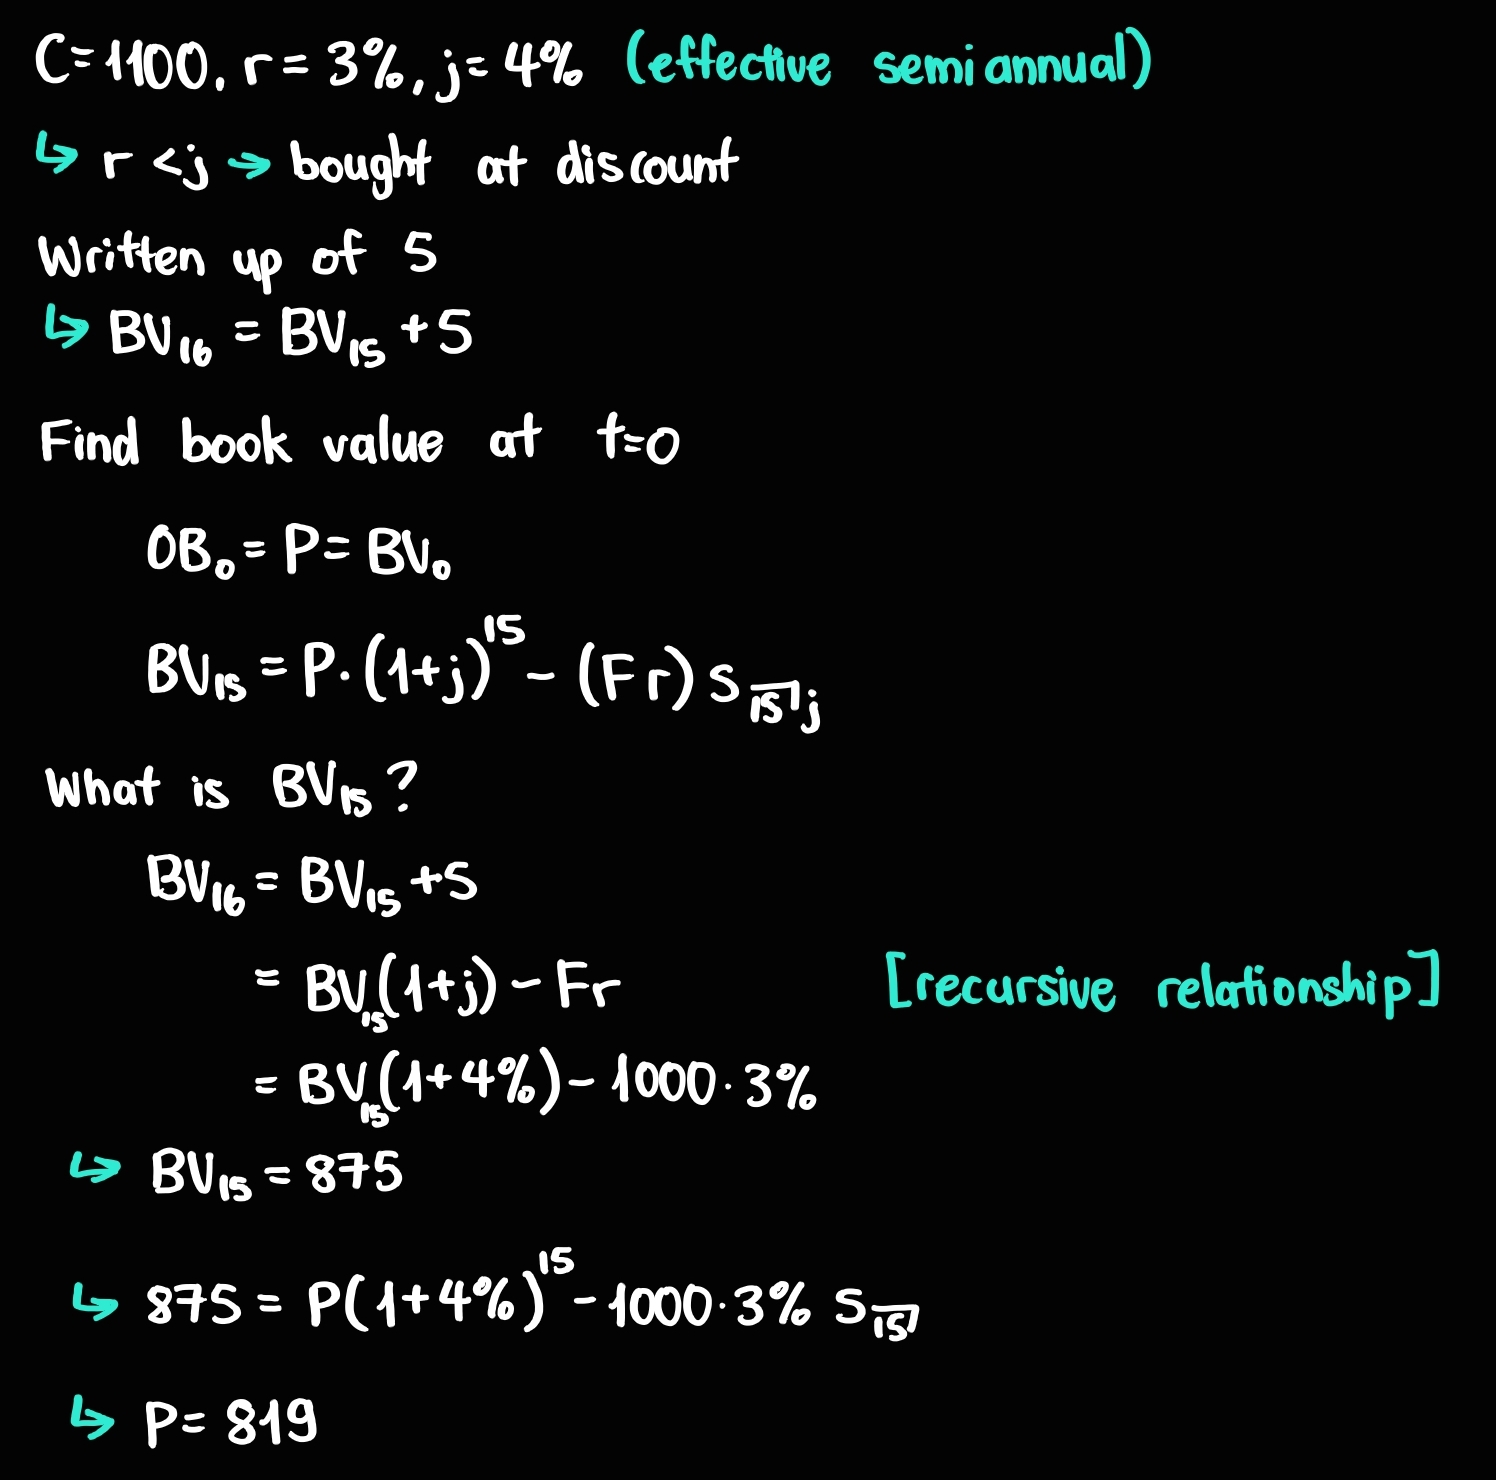 C=1100, r=3%, j=4% (effective semiannual)
↳ r<j → bought at discount
Written up of 5
↳ BV₁₆ = BV₁₅ + 5
Find book value at t=0
OB₀ = P = BV₀
BV₁₅ = P·(1+j)¹⁵ - (Fr) s_15̅|j
What is BV₁₅?
BV₁₆ = BV₁₅ + 5
= BV₁₅(1+j) - Fr [recursive relationship]
= BV₁₅(1+4%) - 1000·3%
↳ BV₁₅ = 875
↳ 875 = P(1+4%)¹⁵ - 1000·3% s_15̅|
↳ P = 819